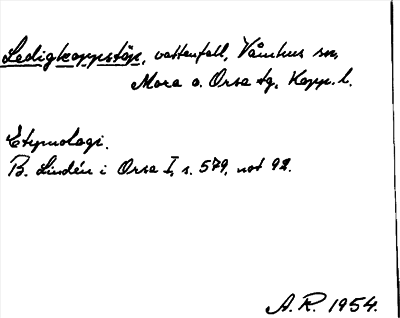 Ledigkoppstöp, vattenfall, Våmhus sn,
Mora o. Orsa tg, Kopp. l.
Etymologi.
B. Lindén i Orsa I, s. 579, not 92.
A.R. 1954.